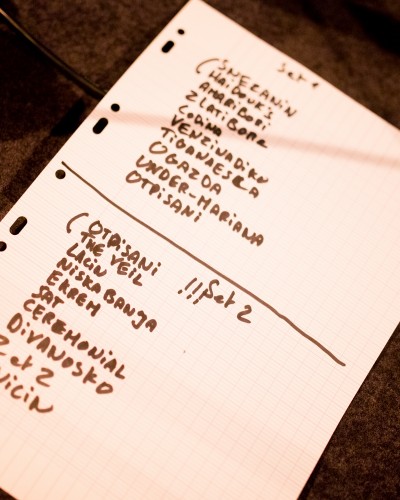 Set 1
(SNEZANIN
HAIDOUK'S
AMARI BORI
ZLATIBORA
GODINA
VENZINADIKU
TIGANAESKA
OGAZDA
UNDER-MARIANA
OTPISANI
(OTPISANI
THE VEIL
LACIN
NISKA BANJA
!!! Set 2
EKREM
SAT
CEREMONIAL
DIVANOSKO
2 et 2
VICIN